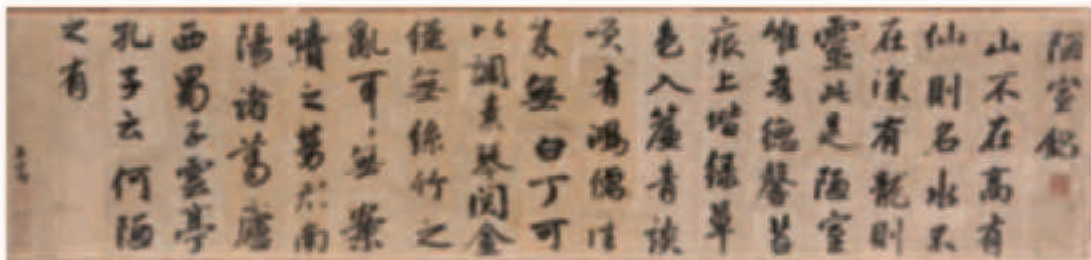 陋室銘
山不在高有
仙則名水不
在深有龍則
靈此是陋室
惟吾德馨苔
痕上堦綠草
色入簾青談
笑有鴻儒往
來無白丁可
以調素琴閱金
經無絲竹之
亂耳無案
牘之勞形南
陽諸葛廬
西蜀子雲亭
孔子云何陋
之有